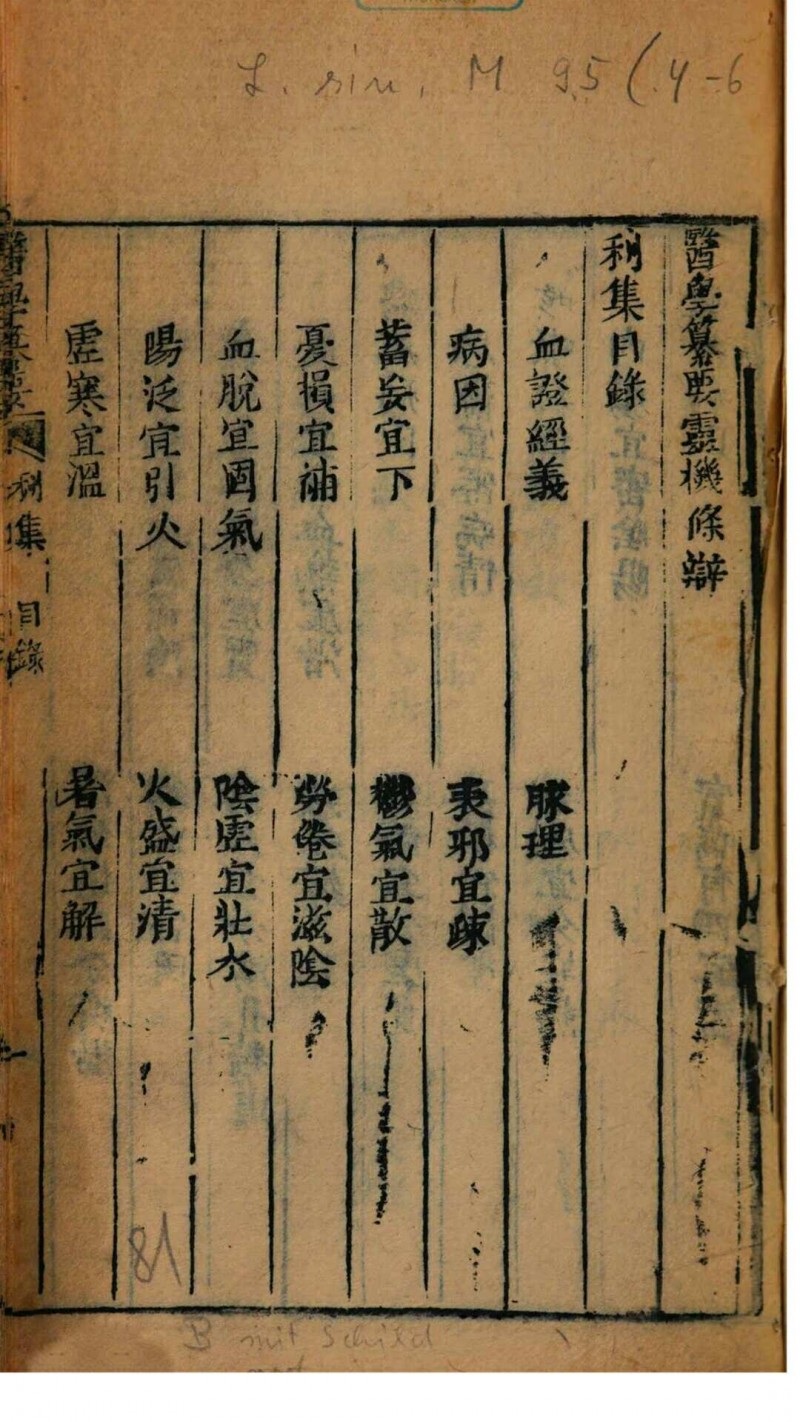 L. sin. M 95 (4-6
醫學纂要靈機條辯
利集目錄
血證經義 脉理
病因 表邪宜疎
蓄妄宜下 鬱氣宜散
憂損宜補 勞倦宜滋陰
血脫宜固氣 陰虛宜壯水
陽泛宜引火 火盛宜清
虛寒宜溫 暑氣宜解
利集 目錄
81
B mit Schild